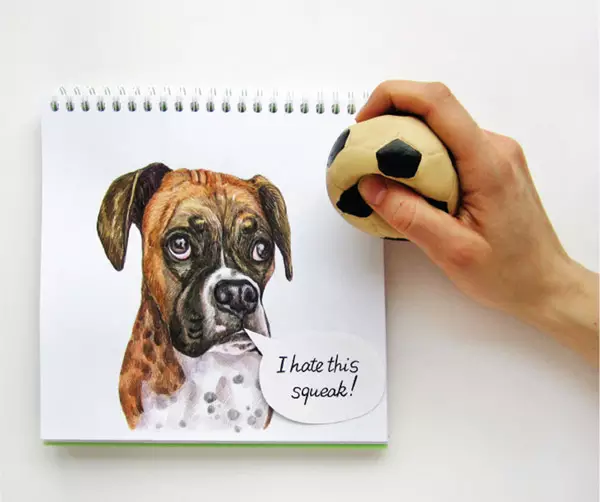 I hate this
squeak!